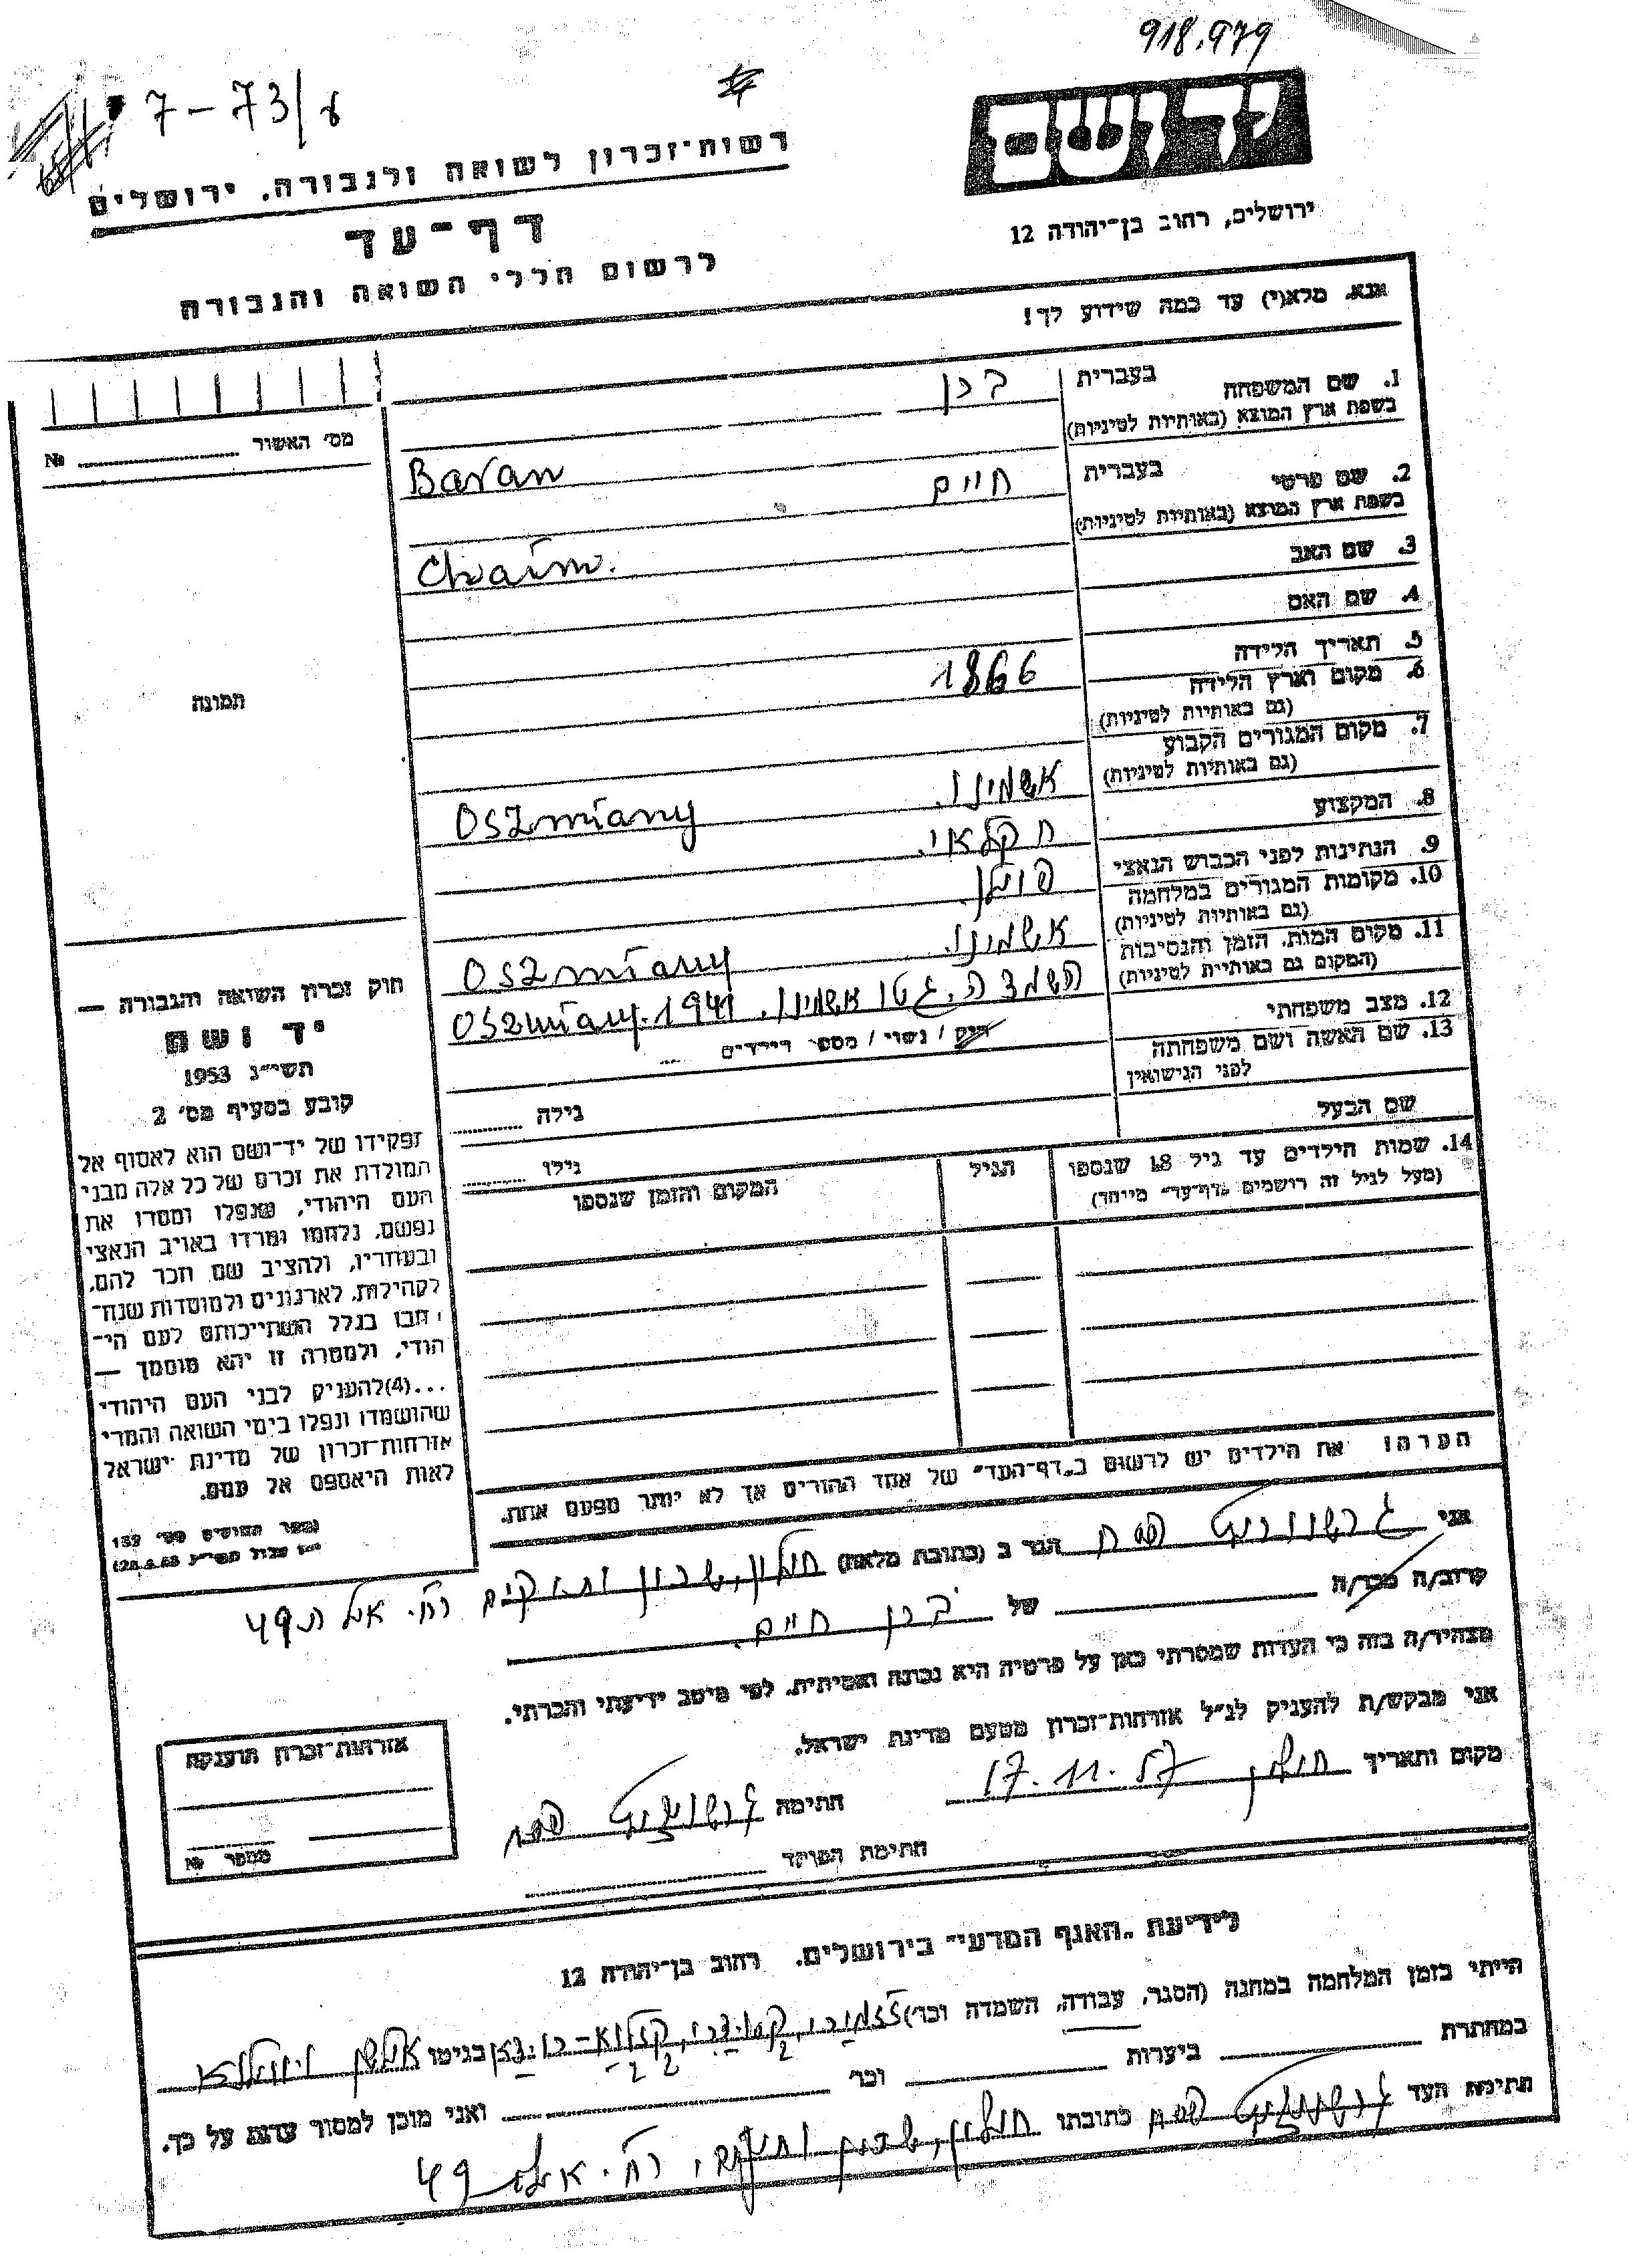 918.979
7-73/8
ידושם
רשות־זכרון לשואה ולגבורה. ירושלים
ירושלים, רחוב בן־יהודה 12
דף־עד
לרשום חללי השואה והגבורה
אנא, מלא(י) עד כמה שידוע לך!
1. שם המשפחה בעברית ברן
(בשפת ארץ המוצא (באותיות לטיניות) Baran
2. שם פרטי בעברית חיים
בשפת ארץ המוצא (באותיות לטיניות) Chaim.
3. שם האב
4. שם האם
5. תאריך הלידה 1866
6. מקום וארץ הלידה
(גם באותיות לטיניות)
7. מקום המגורים הקבוע אשמינו. Oszmiany
(גם באותיות לטיניות)
8. המקצוע חקלאי.
9. הנתינות לפני הכבוש הנאצי פולין
10. מקומות המגורים במלחמה אשמינו. Oszmiany
(גם באותיות לטיניות)
11. מקום המות, הזמן והנסיבות השמדה. גטו אשמינו. Oszmiany. 1941
(המקום גם באותיות לטיניות)
12. מצב משפחתי רווק / נשוי / מספר הילדים
13. שם האשה ושם משפחתה
לפני הנישואין גילה
שם הבעל גילו
14. שמות הילדים עד גיל 18 שנספו הגיל המקום והזמן שנספו
(מעל לגיל זה רושמים „דף־עד״ מיוחד)
הערה! את הילדים יש לרשום ב„דף־העד״ של אחד ההורים אך לא יותר מפעם אחת.
מס׳ האשור №
תמונה
חוק זכרון השואה והגבורה —
יד ושם
תשי״ג 1953
קובע בסעיף מס׳ 2
תפקידו של יד־ושם הוא לאסוף אל
המולדת את זכרם של כל אלה מבני
העם היהודי, שנפלו ומסרו את
נפשם, נלחמו ומרדו באויב הנאצי
ובעוזריו, ולהציב שם וזכר להם,
לקהילות, לארגונים ולמוסדות שנח־
רבו בגלל השתייכותם לעם הי־
הודי, ולמטרה זו יהא מוסמך —
...(4) להעניק לבני העם היהודי
שהושמדו ונפלו בימי השואה והמרי
אזרחות־זכרון של מדינת ישראל
לאות היאספם אל עמם.
(ספר החוקים מס׳ 132
אני גרשוביץ פסח הגר ב (כתובת מלאה) חולון, שכון ותיקים רח. אילת 49
קרוב/ה מכר/ה של ברן חיים.
מצהיר/ה בזה כי העדות שמסרתי כאן על פרטיה היא נכונה ואמיתית, לפי מיטב ידיעתי והכרתי.
אני מבקש/ת להעניק לנ״ל אזרחות־זכרון מטעם מדינת ישראל.
מקום ותאריך חולון 17.11.57 חתימה גרשוביץ פסח
חתימת הפוקד
אזרחות־זכרון הוענקה
מספר №
לידיעת „האגף המדעי״ בירושלים. רחוב בן־יהודה 12
הייתי בזמן המלחמה במחנה (הסגר, עבודה, השמדה וכו׳) בגיטו אושמן ווילנא
במחתרת ביערות וכו׳ ואני מוכן למסור עדות על כך.
חתימת העד גרשוביץ פסח כתובתו חולון, שכון ותיקים, רח. אילת 49